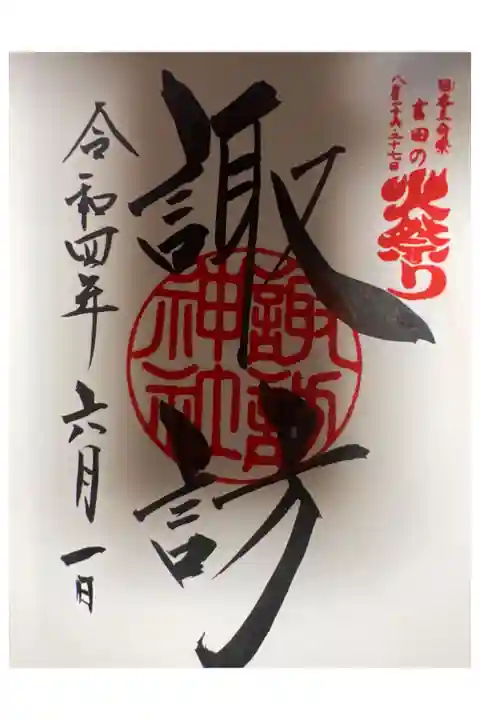 日本三奇祭
吉田の
火祭り
八月二十六・二十七日
諏訪
諏訪
神社
令和四年 六月 一日